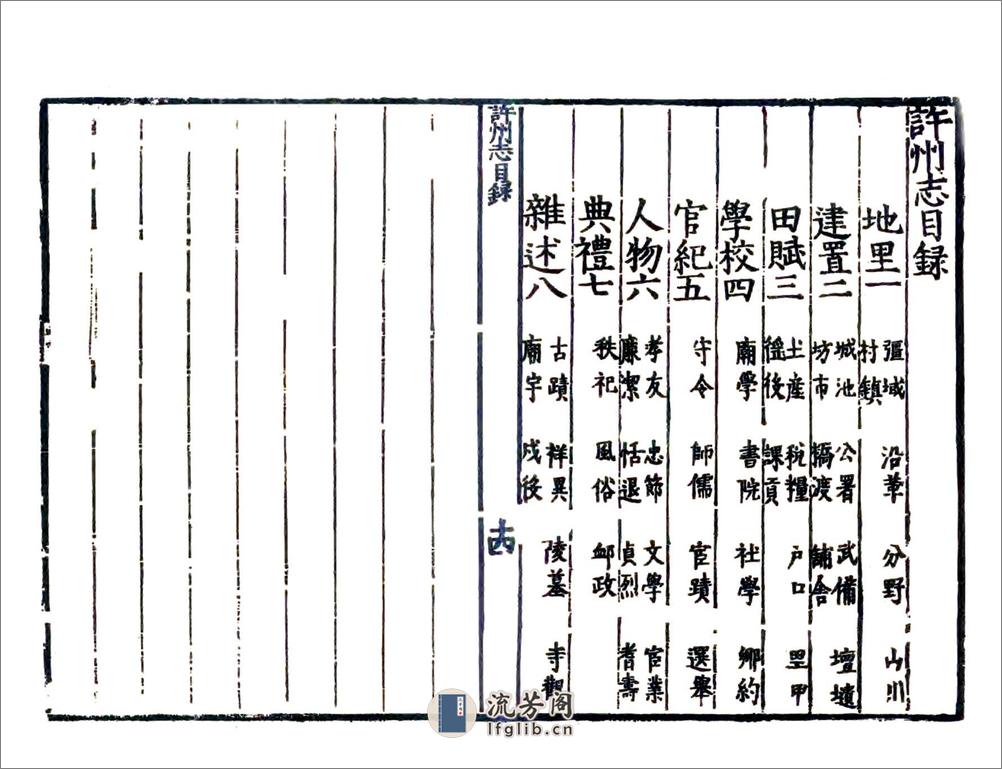 許州志目録
地里一 疆域 沿革 分野 山川
村鎮
建置二 城池 公署 武備 壇壝
坊市 橋渡 鋪舍
田賦三 土産 稅糧 户口 里甲
徭役 課貢
學校四 廟學 書院 社學 鄉約
官紀五 守令 師儒 宦蹟 選舉
人物六 孝友 忠節 文學 宦業
廉潔 恬退 貞烈 耆壽
典禮七 秩祀 風俗 邺政
雜述八 古蹟 祥異 陵墓 寺觀
廟宇 戍後
許州志目録
十四
流芳阁
lfglib.cn